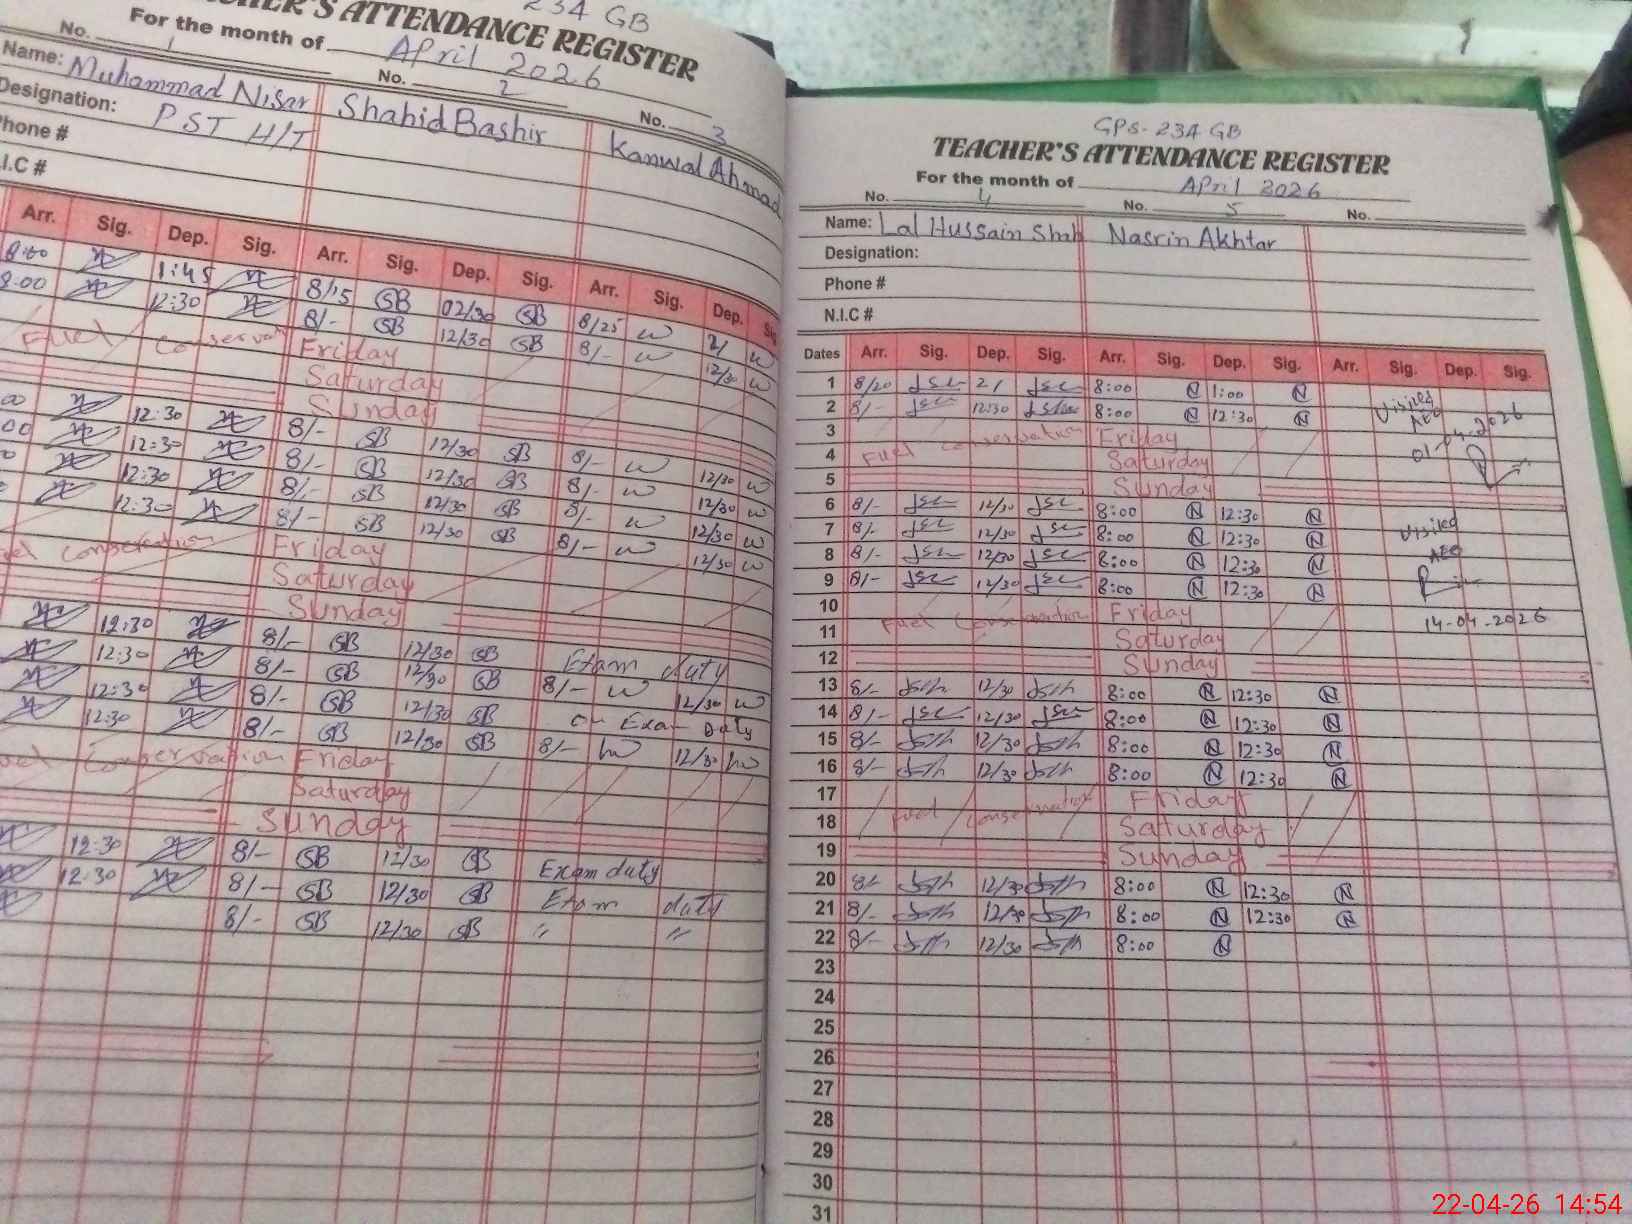 234 GB
TEACHER'S ATTENDANCE REGISTER
For the month of April 2026
No. 1 No. 2 No. 3
Name: Muhammad Nisar Shahid Bashir Kanwal Ahmad
Designation: PST H/T
Phone #
N.I.C #
Arr. Sig. Dep. Sig. Arr. Sig. Dep. Sig. Arr. Sig. Dep. Sig.
8:00 1:45 8/15 SB 02/30 SB 8/25 w 2/ w
8:00 12:30 8/- SB 12/30 SB 8/- w 12/30 w
Fuel Conservation Friday
Saturday
Sunday
00 12:30 8/- SB 12/30 SB 8/- w 12/30 w
00 12:30 8/- SB 12/30 SB 8/- w 12/30 w
12:30 8/- SB 12/30 SB 8/- w 12/30 w
12:30 8/- SB 12/30 SB 8/- w 12/30 w
Fuel Conservation Friday
Saturday
Sunday
12:30 8/- SB 12/30 SB Exam duty
12:30 8/- SB 12/30 SB 8/- w 12/30 w
12:30 8/- SB 12/30 SB on Exam Duty
12:30 8/- SB 12/30 SB 8/- w 12/30 w
Fuel Conservation Friday
Saturday
Sunday
12:30 8/- SB 12/30 SB Exam duty
12:30 8/- SB 12/30 SB Exam duty
8/- SB 12/30 SB " "
GPS-234 GB
TEACHER'S ATTENDANCE REGISTER
For the month of April 2026
No. 4 No. 5 No.
Name: Lal Hussain Shah Nasrin Akhtar
Designation:
Phone #
N.I.C #
Dates Arr. Sig. Dep. Sig. Arr. Sig. Dep. Sig. Arr. Sig. Dep. Sig.
1 8/20 2/ 8:00 N 1:00 N
2 8/- 12:30 8:00 N 12:30 N
3 Fuel Conservation Friday
4 Saturday
5 Sunday
6 8/- 12/30 8:00 N 12:30 N
7 8/- 12/30 8:00 N 12:30 N
8 8/- 12/30 8:00 N 12:30 N
9 8/- 12/30 8:00 N 12:30 N
10 Fuel Conservation Friday
11 Saturday
12 Sunday
13 8/- 12/30 8:00 N 12:30 N
14 8/- 12/30 8:00 N 12:30 N
15 8/- 12/30 8:00 N 12:30 N
16 8/- 12/30 8:00 N 12:30 N
17 Fuel Conservation Friday
18 Saturday
19 Sunday
20 8/- 12/30 8:00 N 12:30 N
21 8/- 12/30 8:00 N 12:30 N
22 8/- 12/30 8:00 N
23
24
25
26
27
28
29
30
31
Visited
AEO
01-04-2026
Visited
AEO
14-04-2026
22-04-26 14:54